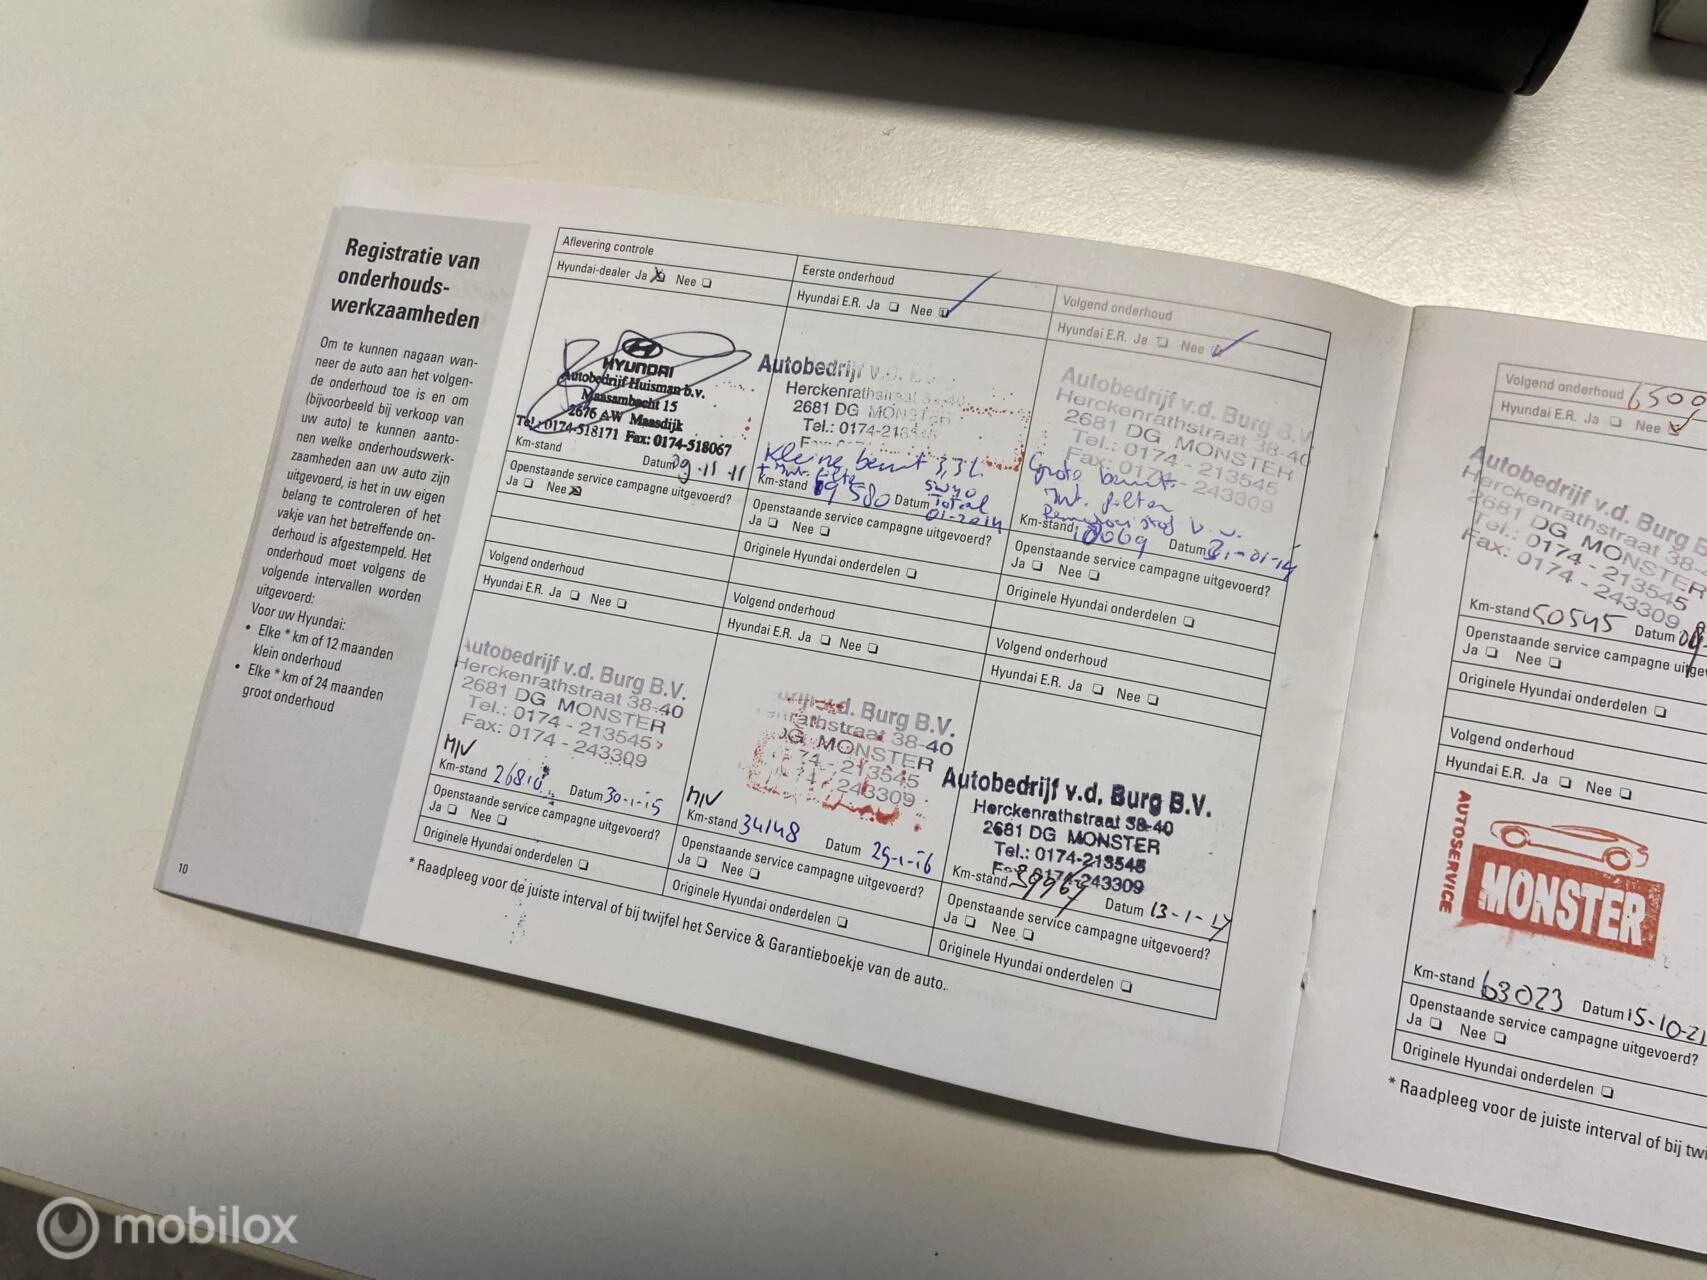 Registratie van
onderhouds-
werkzaamheden
Om te kunnen nagaan wan-
neer de auto aan het volgen-
de onderhoud toe is en om
(bijvoorbeeld bij verkoop van
uw auto) te kunnen aanto-
nen welke onderhoudswerk-
zaamheden aan uw auto zijn
uitgevoerd, is het in uw eigen
belang te controleren of het
vakje van het betreffende on-
derhoud is afgestempeld. Het
onderhoud moet volgens de
volgende intervallen worden
uitgevoerd:
Voor uw Hyundai:
• Elke * km of 12 maanden
klein onderhoud
• Elke * km of 24 maanden
groot onderhoud
10
Aflevering controle
Hyundai-dealer Ja Nee
HYUNDAI
Autobedrijf Huisman b.v.
Maasambacht 15
2676 AW Maasdijk
Tel.: 0174-518171 Fax: 0174-518067
Km-stand Datum
Openstaande service campagne uitgevoerd?
Ja Nee
Eerste onderhoud
Hyundai E.R. Ja Nee
Autobedrijf v.d. Burg
Herckenrathstraat 38-40
2681 DG MONSTER
Tel.: 0174-213545
Kleine beurt 3,3 L.
Km-stand 19580 Datum 01-2014
Total
Openstaande service campagne uitgevoerd?
Ja Nee
Originele Hyundai onderdelen
Volgend onderhoud
Hyundai E.R. Ja Nee
Autobedrijf v.d. Burg B.V.
Herckenrathstraat 38-40
2681 DG MONSTER
Tel.: 0174 - 213545
Fax: 0174 - 243309
Grote beurt
Int. filter
Km-stand Datum
Openstaande service campagne uitgevoerd?
Ja Nee
Originele Hyundai onderdelen
Volgend onderhoud
Hyundai E.R. Ja Nee
Autobedrijf v.d. Burg B.V.
Herckenrathstraat 38-40
2681 DG MONSTER
Tel.: 0174 - 213545
Fax: 0174 - 243309
Km-stand 26810 Datum 30-1-15
Openstaande service campagne uitgevoerd?
Ja Nee
Originele Hyundai onderdelen
Volgend onderhoud
Hyundai E.R. Ja Nee
v.d. Burg B.V.
straat 38-40
DG MONSTER
74 - 213545
243309
Km-stand 34148 Datum 29-1-16
Openstaande service campagne uitgevoerd?
Ja Nee
Originele Hyundai onderdelen
Volgend onderhoud
Hyundai E.R. Ja Nee
Autobedrijf v.d. Burg B.V.
Herckenrathstraat 38-40
2681 DG MONSTER
Tel.: 0174-213545
Fax: 0174-243309
Km-stand 39964 Datum 13-1-17
Openstaande service campagne uitgevoerd?
Ja Nee
Originele Hyundai onderdelen
* Raadpleeg voor de juiste interval of bij twijfel het Service & Garantieboekje van de auto.
Volgend onderhoud
Hyundai E.R. Ja Nee
Autobedrijf v.d. Burg
Herckenrathstraat 38-
2681 DG MONSTER
Tel.: 0174 - 213545
Fax: 0174 - 243309
Km-stand 50545 Datum
Openstaande service campagne
Ja Nee
Originele Hyundai onderdelen
Volgend onderhoud
Hyundai E.R. Ja Nee
AUTOSERVICE
MONSTER
Km-stand 63023 Datum 15-10-21
Openstaande service campagne uitgevoerd?
Ja Nee
Originele Hyundai onderdelen
* Raadpleeg voor de juiste interval of bij
mobilox